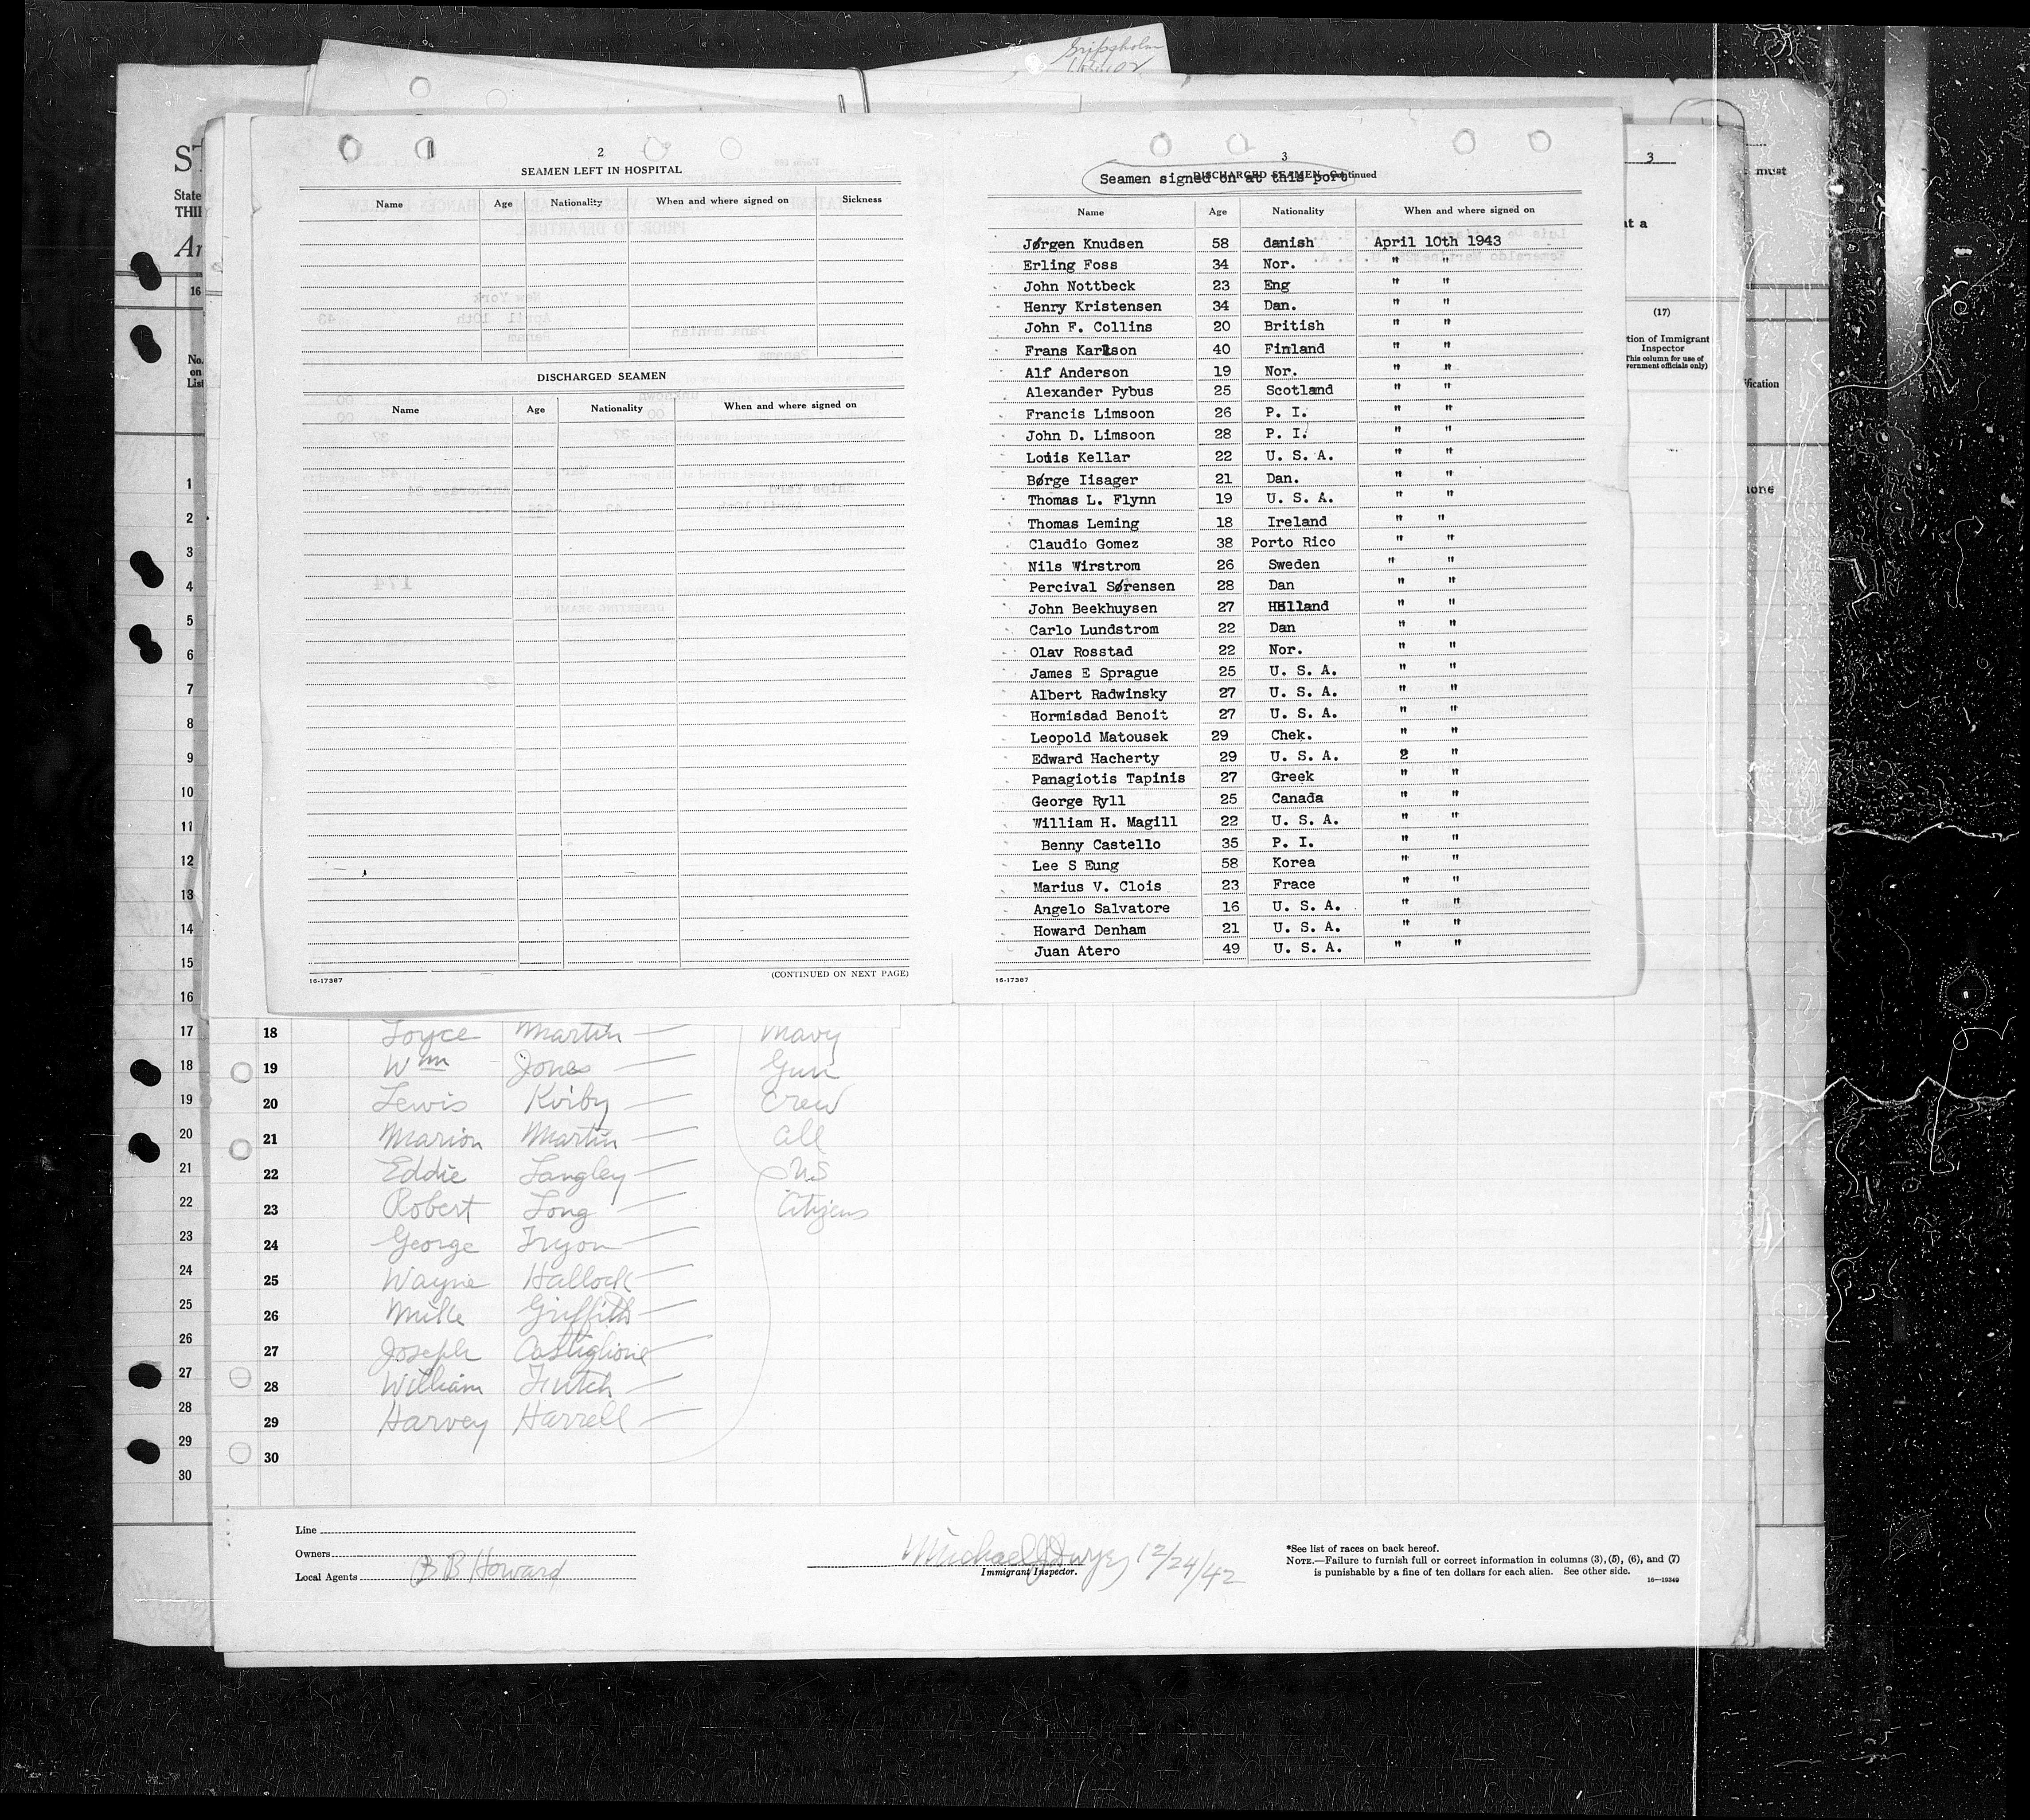 Gripsholm
3
must
ST
State
THI
Ar
at a
16
No.
on
List
(17)
tion of Immigrant
Inspector
This column for use of
vernment officials only)
fication
one
2
SEAMEN LEFT IN HOSPITAL
Name Age Nationality When and where signed on Sickness
DISCHARGED SEAMEN
Name Age Nationality When and where signed on
16-17387 (CONTINUED ON NEXT PAGE)
3
DISCHARGED SEAMEN—Continued
Seamen signed on at this port
Name Age Nationality When and where signed on
Jørgen Knudsen 58 danish April 10th 1943
Erling Foss 34 Nor. " "
John Nottbeck 23 Eng " "
Henry Kristensen 34 Dan. " "
John F. Collins 20 British " "
Frans Karlson 40 Finland " "
Alf Anderson 19 Nor. " "
Alexander Pybus 25 Scotland " "
Francis Limsoon 26 P. I. " "
John D. Limsoon 28 P. I. " "
Louis Kellar 22 U. S. A. " "
Børge Iisager 21 Dan. " "
Thomas L. Flynn 19 U. S. A. " "
Thomas Leming 18 Ireland " "
Claudio Gomez 38 Porto Rico " "
Nils Wirstrom 26 Sweden " "
Percival Sørensen 28 Dan " "
John Beekhuysen 27 Holland " "
Carlo Lundstrom 22 Dan " "
Olav Rosstad 22 Nor. " "
James E Sprague 25 U. S. A. " "
Albert Radwinsky 27 U. S. A. " "
Hormisdad Benoit 27 U. S. A. " "
Leopold Matousek 29 Chek. " "
Edward Hacherty 29 U. S. A. 2 "
Panagiotis Tapinis 27 Greek " "
George Ryll 25 Canada " "
William H. Magill 22 U. S. A. " "
Benny Castello 35 P. I. " "
Lee S Eung 58 Korea " "
Marius V. Clois 23 Frace " "
Angelo Salvatore 16 U. S. A. " "
Howard Denham 21 U. S. A. " "
Juan Atero 49 U. S. A. " "
16-17387
1
2
3
4
5
6
7
8
9
10
11
12
13
14
15
16
17
18
19
20
21
22
23
24
25
26
27
28
29
30
18 Loyce Martin Navy
19 Wm Jones Gun
20 Lewis Kirby Crew
21 Marion Martin all
22 Eddie Langley US
23 Robert Long Citizens
24 George Tryon
25 Wayne Hallock
26 Mike Griffith
27 Joseph Castiglione
28 William Futch
29 Harvey Harrell
30
Line
Owners
Local Agents B B Howard
Michael J Dwyer 12/24/42
Immigrant Inspector.
*See list of races on back hereof.
NOTE.—Failure to furnish full or correct information in columns (3), (5), (6), and (7)
is punishable by a fine of ten dollars for each alien. See other side.
16—19349